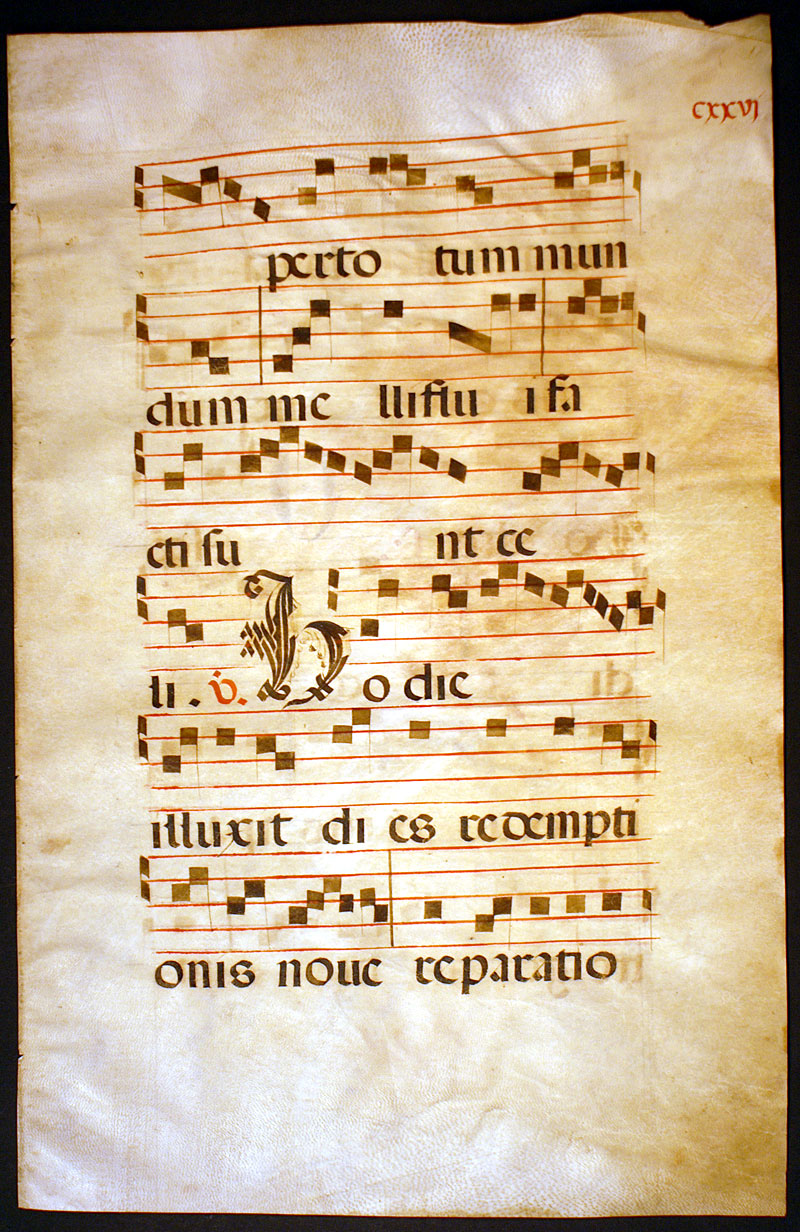 cxxvj
perto tum mun
dum me lliflu i fa
cti su nt ce
li . v. Ho die
illuxit di es redempti
onis noue reparatio